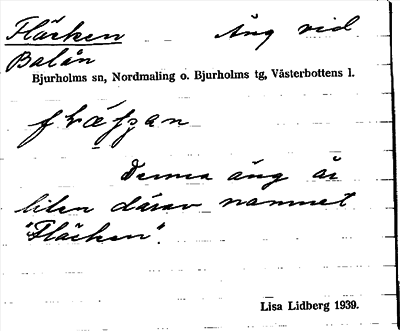 Fläcken Äng vid
Balån
Bjurholms sn, Nordmaling o. Bjurholms tg, Västerbottens l.
Denna äng är
liten därav namnet
"Fläcken".
Lisa Lidberg 1939.